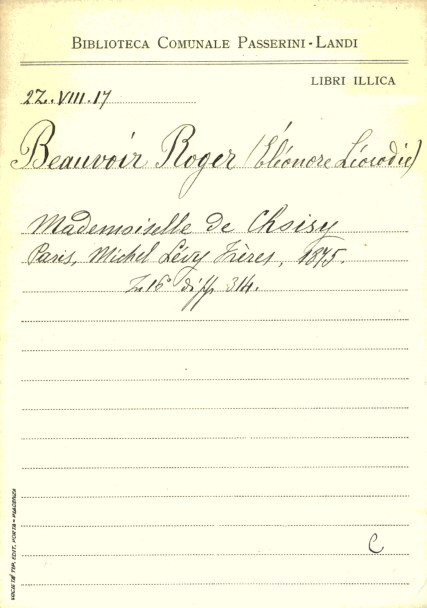 BIBLIOTECA COMUNALE PASSERINI-LANDI
LIBRI ILLICA
2Z.VIII.17
Beauvoir Roger (Éléonore Léocadie)
Mademoiselle de Choisy
Paris, Michel Lévy Frères, 1875.
16° di pp 314.
C